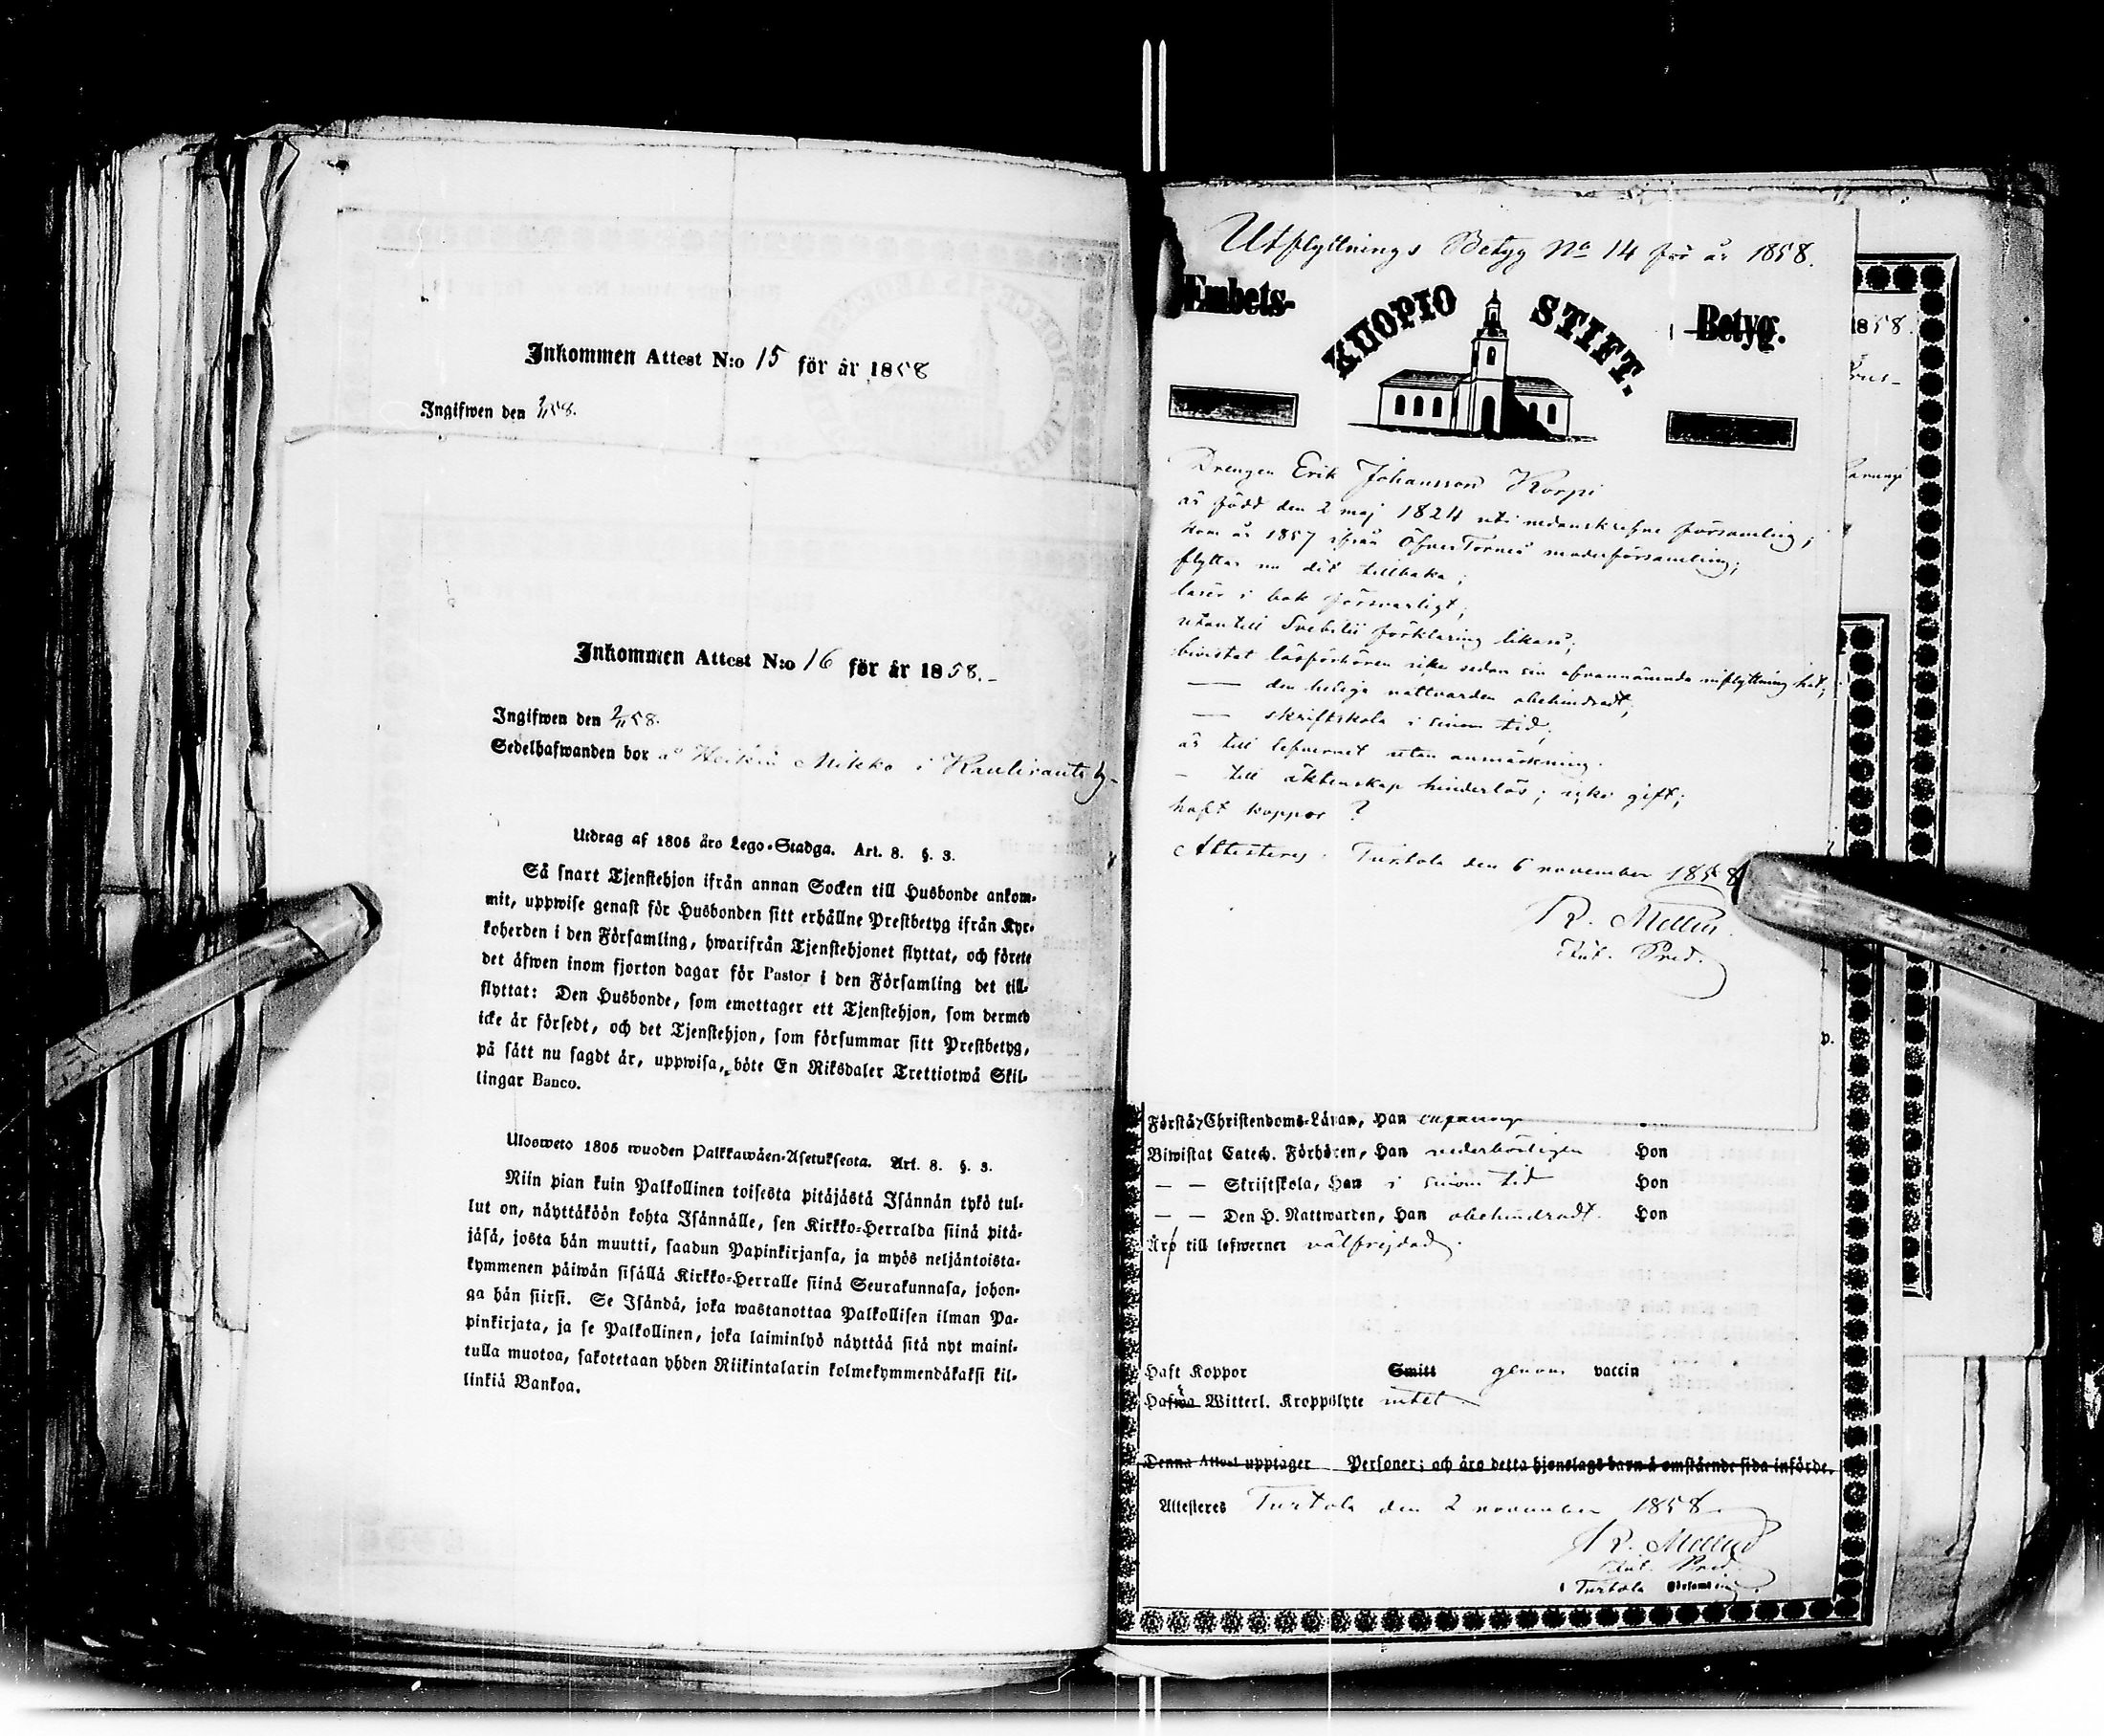 Inkommen Attest N:o 15 för år 1858
Ingifwen den 58.
Inkommen Attest N:o 16 för år 1858.
Ingifwen den 2/11 58.
Sedelhafwanden bor å Heikin Mikko i Kauliranta by
Utdrag af 1805 års Lego-Stadga. Art. 8. §. 3.
Så snart Tjenstehjon ifrån annan Socken till Husbonde ankom-
mit, uppwise genast för Husbonden sitt erhållne Prestbetyg ifrån Kyr-
koherden i den Församling, hwarifrån Tjenstehjonet flyttat, och förete
det äfwen inom fjorton dagar för Pastor i den Församling det till-
flyttat: Den Husbonde, som emottager ett Tjenstehjon, som dermed
icke är försedt, och det Tjenstehjon, som försummar sitt Prestbetyg,
på sätt nu sagdt är, uppwisa, böte En Riksdaler Trettiotwå Skil-
lingar Banco.
Ulosweto 1805 wuoden Palkkawäen-Asetuksesta. Art. 8. §. 3.
Niin pian kuin Palkollinen toisesta pitäjästä Isännän tykö tul-
lut on, näyttäköön kohta Isännälle, sen Kirkko-Herralda siinä pitä-
jäsä, josta hän muutti, saadun Papinkirjansa, ja myös neljäntoista-
kymmenen päiwän sisällä Kirkko-Herralle siinä Seurakunnasa, johon-
ga hän siirsi. Se Isändä, joka wastanottaa Palkollisen ilman Pa-
pinkirjata, ja se Palkollinen, joka laiminlyö näyttää sitä nyt maini-
tulla muotoa, sakotetaan yhden Riikintalarin kolmekymmendäkaksi kil-
linkiä Bankoa.
Utflyttnings Betyg No 14 för år 1858.
Embets- KUOPIO STIFT. Betyg.
Drengen Erik Johansson Korpi
är född den 2 maj 1824 uti nedanskrefne församling;
kom år 1857 ifrån ÖfverTorneå moderförsamling;
flyttar nu dit tillbaka;
läser i bok försvarligt;
utantill Svebilii förklaring likaså;
bivistat läsförhören icke sedan sin ofvannämnda inflyttning hit;
— den heliga nattvarden obehindradt;
— skriftskola i sinom tid;
är till lefvernet utan anmärkning.
- till äktenskap hinderlös; icke gift;
haft koppor ?
Attesteras. Turtola den 6 november 1858
R. Mellin
Kap. Pred.
1858.
p.
Förstå Christendoms-Läran, Han
Biwistat Catech. Förhören, Han vederbörligen Hon
— — Skriftskola, Han i sinom tid Hon
— — Den H. Nattwarden, Han obehindradt. Hon
Äro till lefwernet välfrejdad.
Haft Koppor Smitt genom vaccin
Hafwa Witterl. Kroppslyte intet
Denna Attest upptager Personer; och äro detta hjonelags barn å omstående sida införde.
Attesteres Turtola den 2 november 1858.
R. Mellin
Pred.
i Turtola Församling.